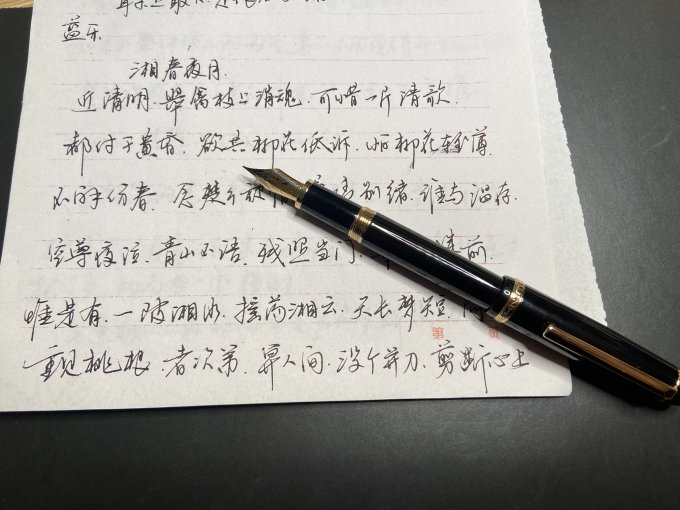 湘春夜月
近清明.翠禽枝上消魂.可惜一片清歌.
都付于黄昏.欲共柳花低诉.怕柳花轻薄.
不解伤春.念楚乡旅 情别绪.谁与温存.
空尊夜泣.青山不语.残照当门. 前.
唯是有.一陂湘水.摇荡湘云.天长梦短.问
第 页
重见桃根.者次第.算人间.没个并刀.剪断心上